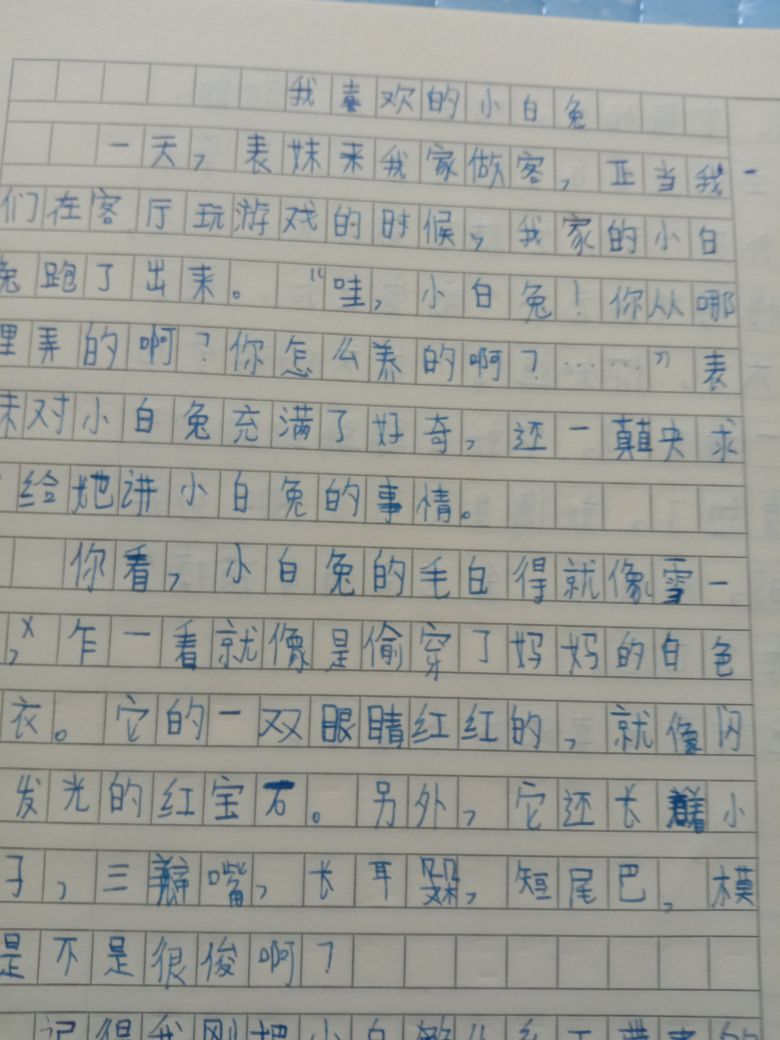 我喜欢的小白兔
一天，表妹来我家做客，正当我
们在客厅玩游戏的时候，我家的小白
兔跑了出来。“哇，小白兔！你从哪
里弄的啊？你怎么养的啊？……”表
妹对小白兔充满了好奇，还一颠央求
给她讲小白兔的事情。
你看，小白兔的毛白得就像雪一
，乍一看就像是偷穿了妈妈的白色
衣。它的一双眼睛红红的，就像闪
发光的红宝石。另外，它还长着小
子，三瓣嘴，长耳朵，短尾巴，模
是不是很俊啊？
记得我刚把小白